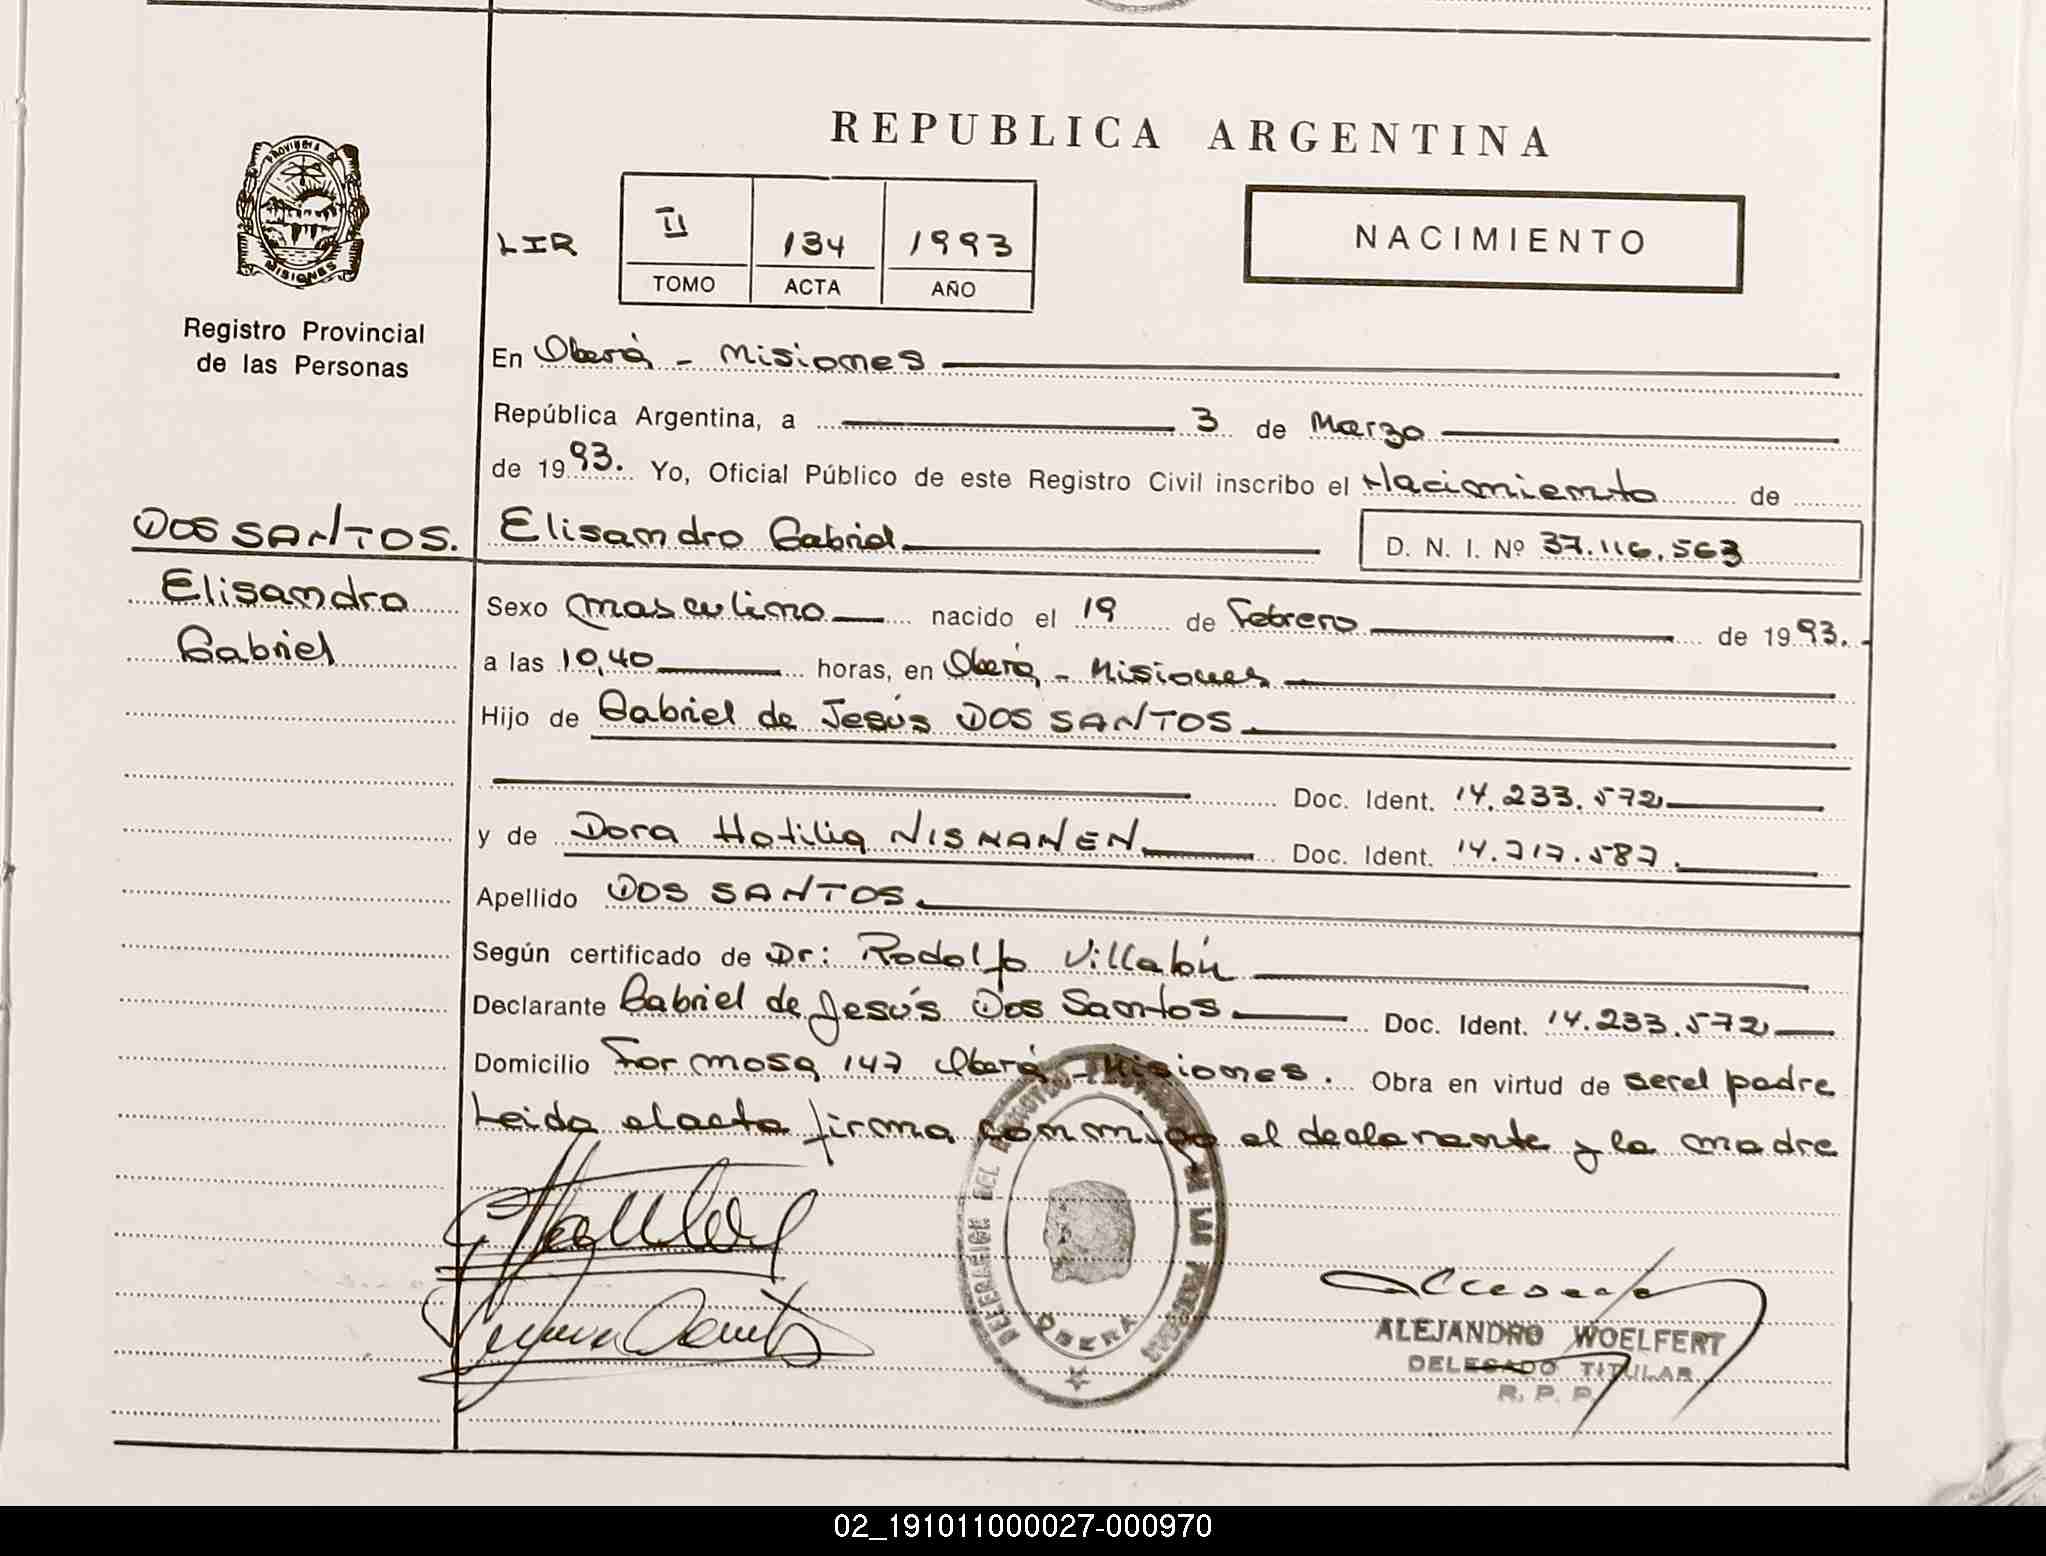 REPUBLICA ARGENTINA
PROVINCIA DE
MISIONES
LIR
II
134
1993
TOMO
ACTA
AÑO
NACIMIENTO
Registro Provincial
de las Personas
En Oberá - Misiones
República Argentina, a 3 de Marzo
de 1993. Yo, Oficial Público de este Registro Civil inscribo el Nacimiento de
DOS SANTOS. Elisandro Gabriel D. N. I. Nº 37.116.563
Elisandro
Gabriel
Sexo masculino nacido el 19 de Febrero de 1993.
a las 10,40 horas, en Oberá - Misiones
Hijo de Gabriel de Jesús DOS SANTOS
Doc. Ident. 14.233.572
y de Dora Hotilia Doc. Ident. 14.717.587.
Apellido DOS SANTOS.
Según certificado de Dr: Rodolfo
Declarante Gabriel de Jesús Dos Santos Doc. Ident. 14.233.572
Domicilio Formosa 147 Oberá - Misiones. Obra en virtud de ser el padre
Leida el acta firma conmigo el declarante y la madre
OBERA
ALEJANDRO WOELFERT
DELEGADO TITULAR
R. P. P.
02_191011000027-000970